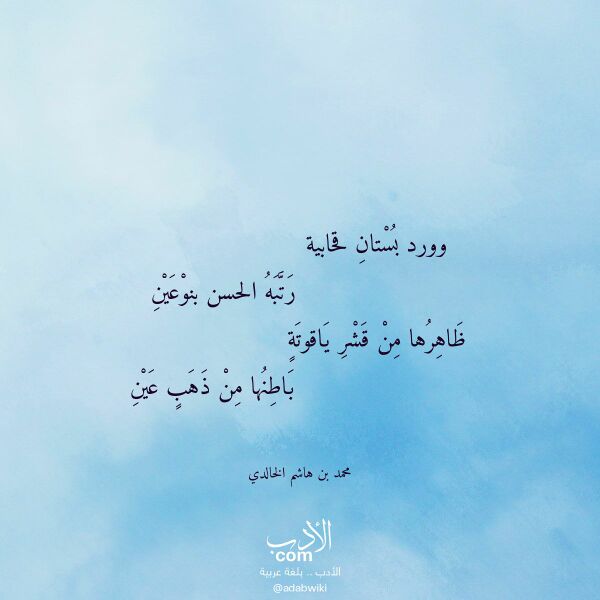 وورد بُسْتانِ قحابية
رَتَّبَهُ الحسن بنوْعَيْنِ
ظَاهِرُها مِنْ قَشْرِ يَاقوتَةٍ
بَاطِنُها مِنْ ذَهَبٍ عَيْنِ
محمد بن هاشم الخالدي
الأدب
com
الأدب .. بلغة عربية
@adabwiki